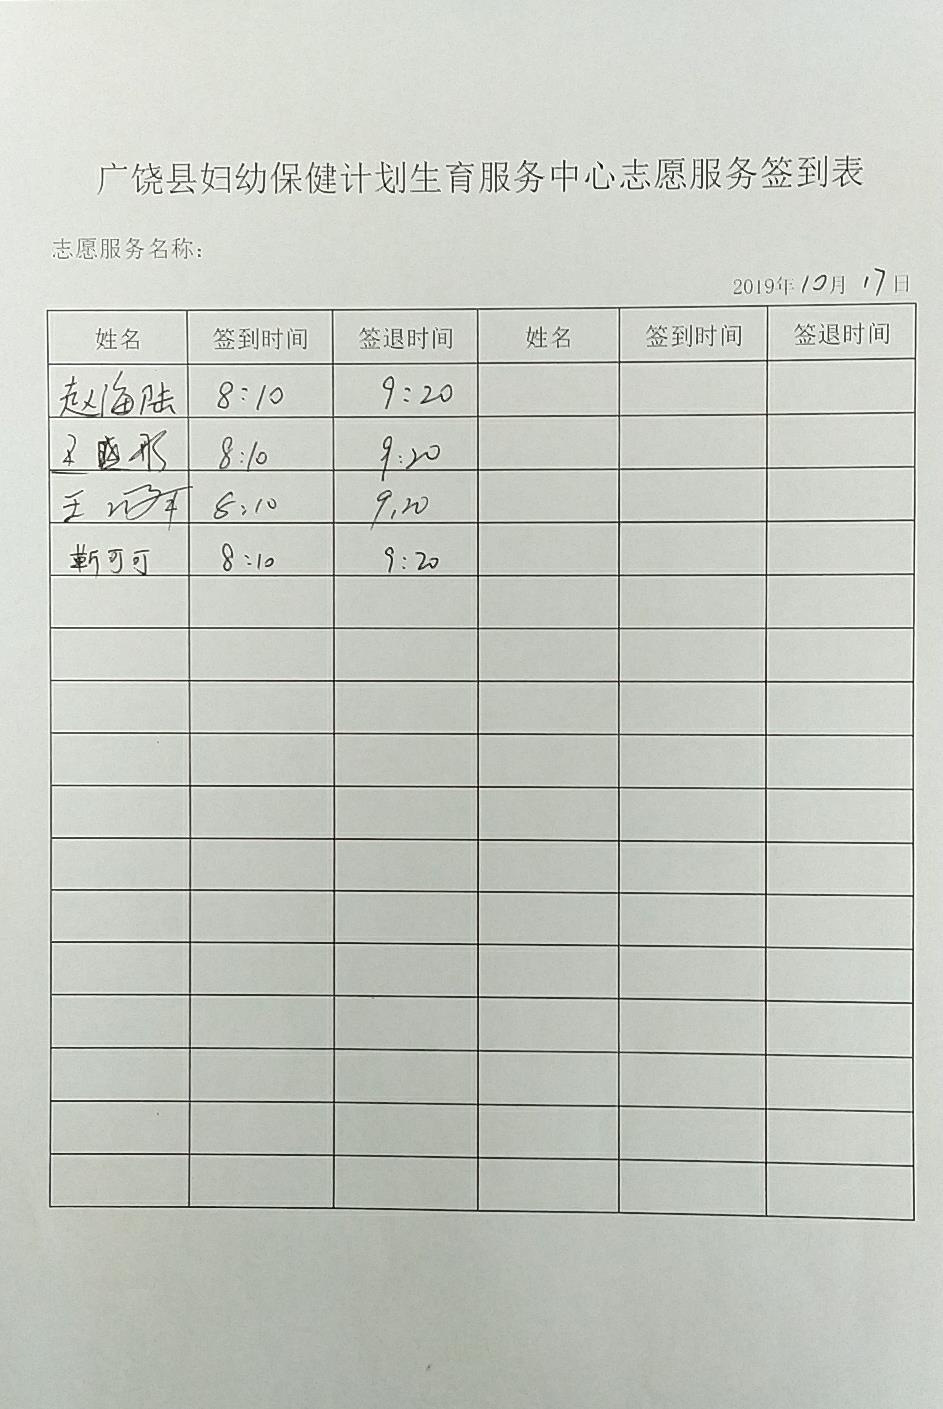 广饶县妇幼保健计划生育服务中心志愿服务签到表
志愿服务名称：
2019年10月17日
姓名 签到时间 签退时间 姓名 签到时间 签退时间
赵海陆 8:10 9:20
王晓彤 8:10 9:20
王 8:10 9.20
靳可可 8:10 9:20